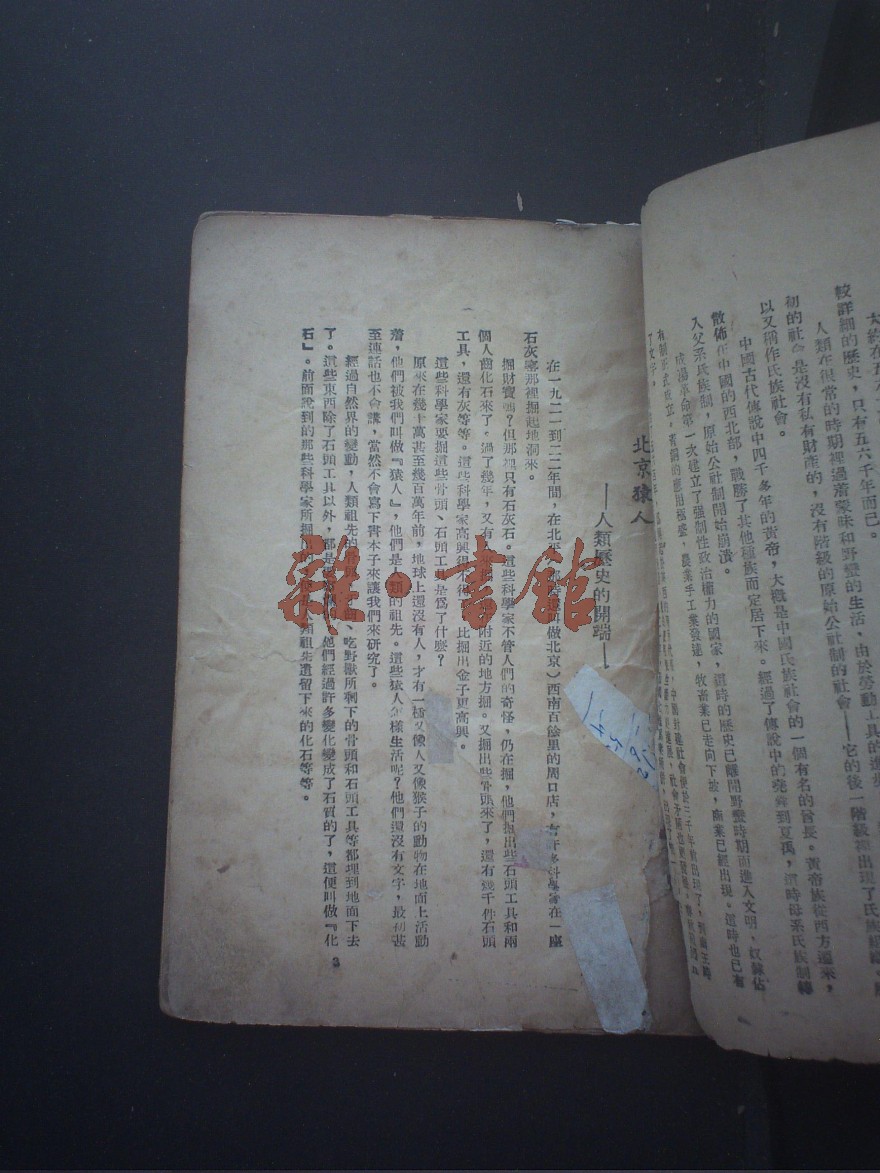 較詳細的歷史，只有五六千年而已。
人類在很常的時期裡過着蒙昧和野蠻的生活，由於勞動工具的進步
初的社會是沒有私有財產的，沒有階級的原始公社制的社會——它的後一階級裡出現了氏族組織
以又稱作氏族社會。
中國古代傳說中四千多年的黃帝，大概是中國氏族社會的一個有名的酋長。黃帝族從西方遷來，
散佈在中國的西北部，戰勝了其他種族而定居下來。經過了傳說中的堯舜到夏禹，這時母系氏族制轉
入父系氏族制，原始公社制開始崩潰。
成湯革命第一次建立了强制性政治權力的國家，這時的歷史已離開野蠻時期而進入文明、奴隸佔
農業手工業發達，牧畜業已走向下坡，商業已經出現。這時也已有
了文字。
北京猿人
——人類歷史的開端——
在一九二一到二二年間，在北平 叫做北京）西南百餘里的周口店，有許多科學家在一座
石灰窰那裡掘起地洞來。
掘財寶嗎？但那裡只有石灰石。這些科學家不管人們的奇怪，仍在掘，他們掘出些石頭工具和兩
個人齒化石來了。過了幾年，又有人 附近的地方掘。又掘出些骨頭來了，還有幾千件石頭
工具，還有灰等等。這些科學家高興得不得 比掘出金子更高興。
這些科學家要掘這些骨頭、石頭工 是爲了什麼？
原來在幾十萬甚至幾百萬年前，地球上還沒有人，才有一種又像人又像猴子的動物在地面上活動
着，他們被我們叫做『猿人』，他們是人類的祖先。這些猿人怎樣生活呢？他們還沒有文字，最初甚
至連話也不會講，當然不會寫下書本子來讓我們來研究了。
經過自然界的變動，人類祖先的 吃野獸所剩下的骨頭和石頭工具等都埋到地面下去
了。這些東西除了石頭工具以外，都是 他們經過許多變化變成了石質的了，這便叫做『化
石』。前面說到的那些科學家所掘出的 人類祖先遺留下來的化石等等。
3
雜·書館